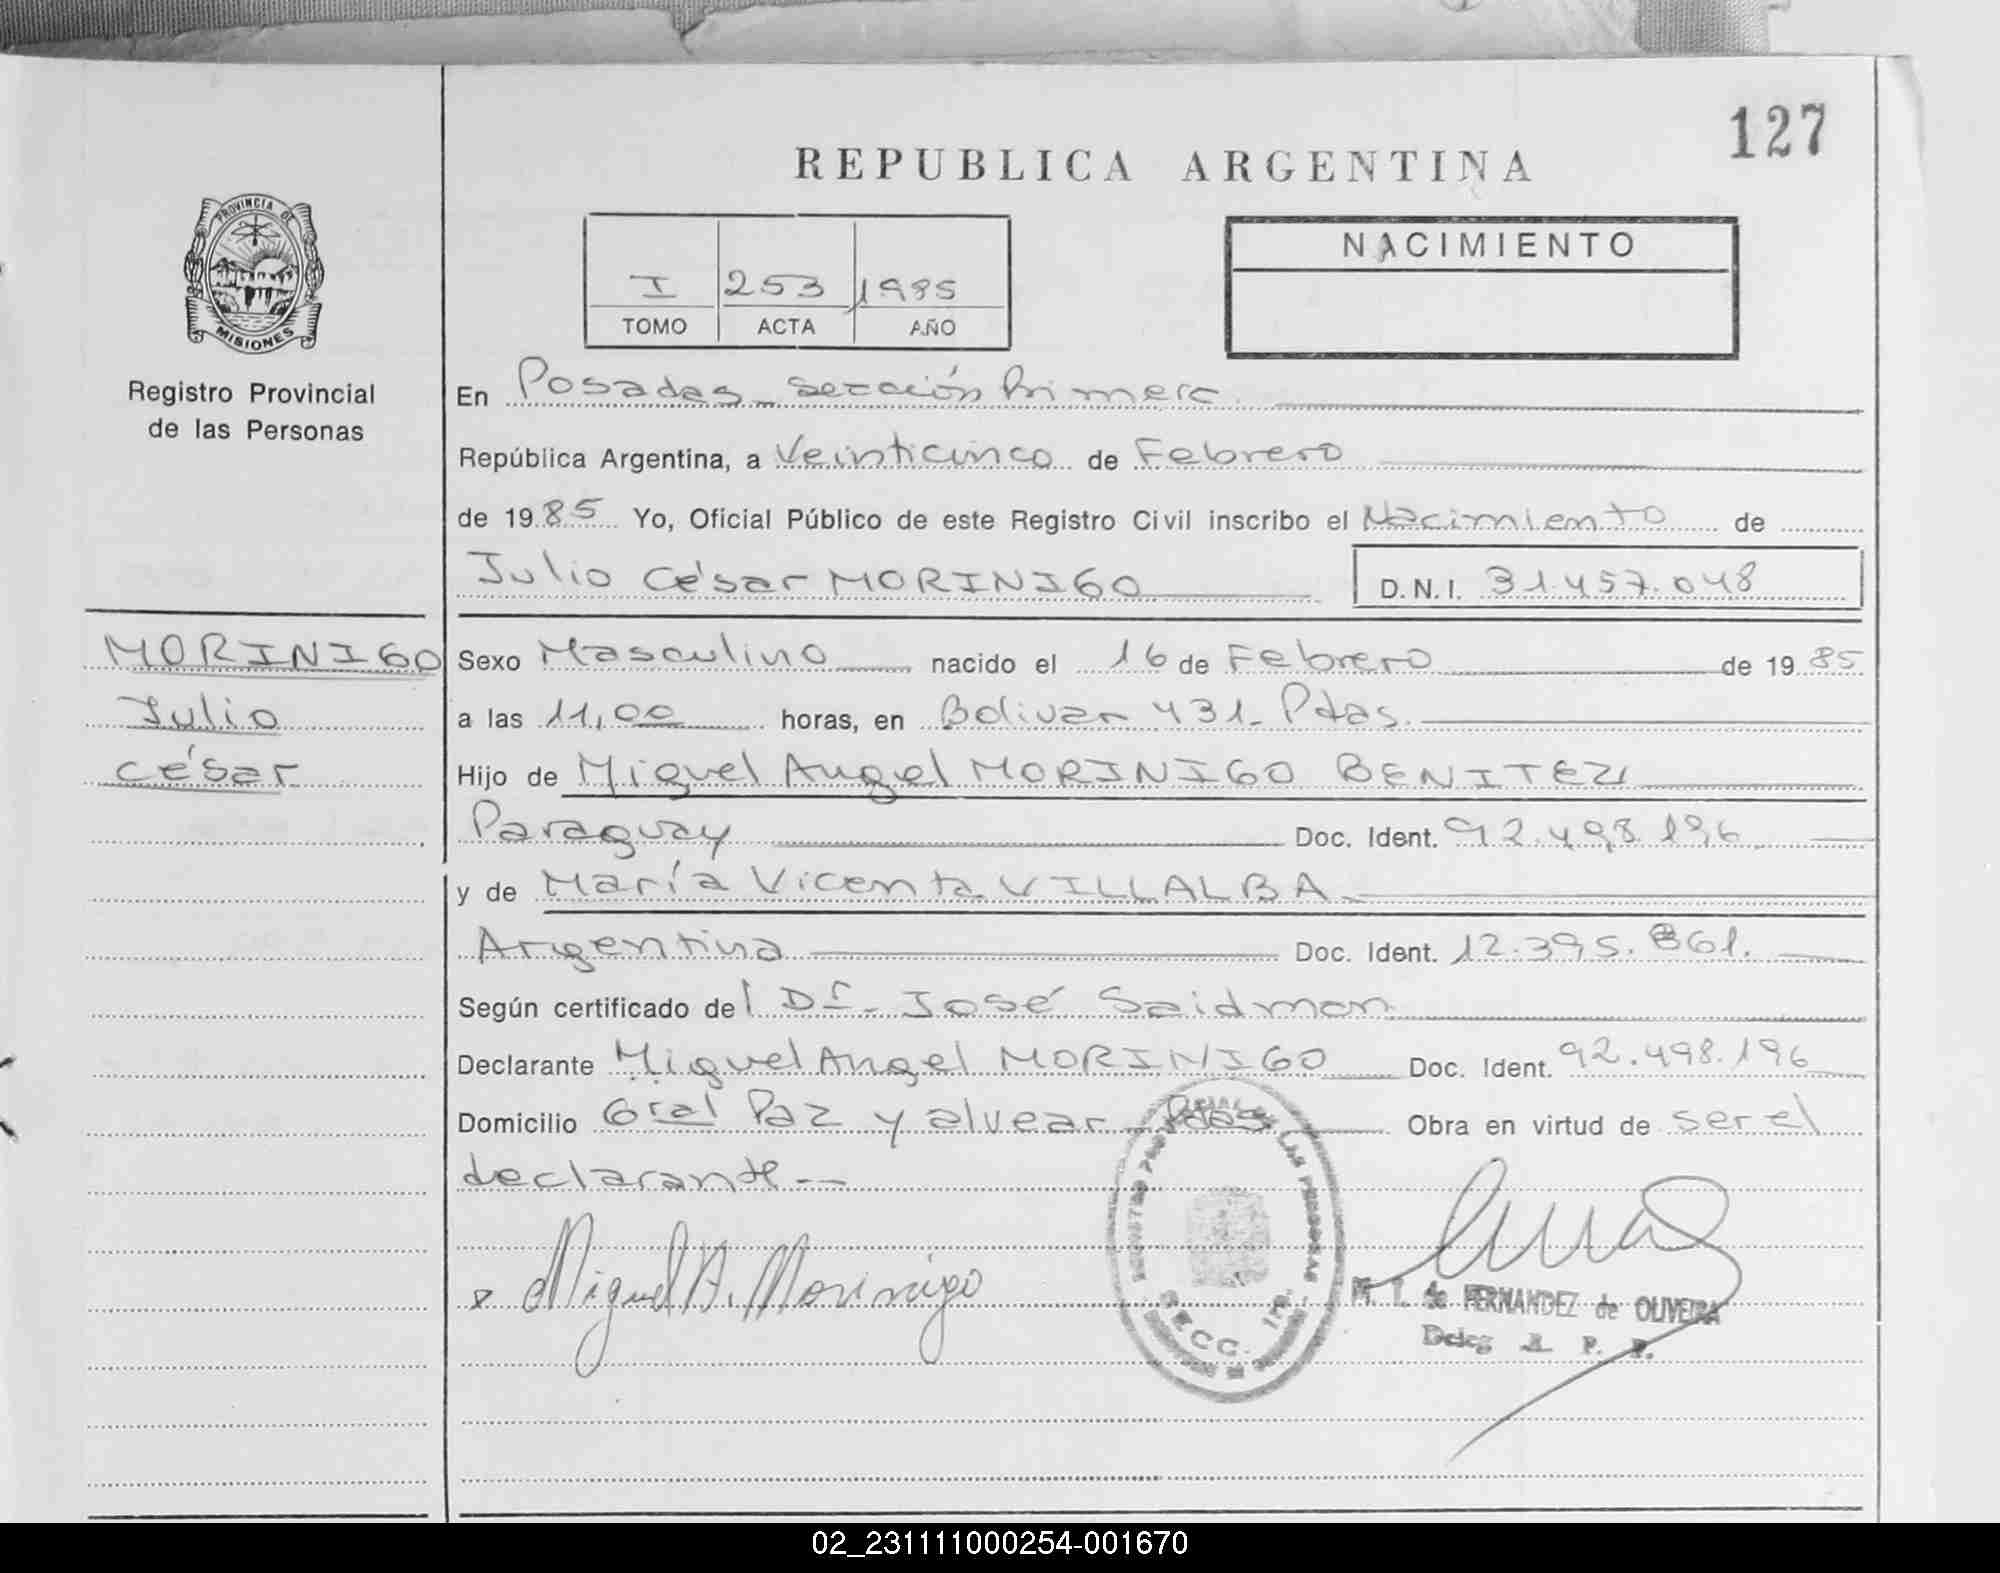 127
REPUBLICA ARGENTINA
PROVINCIA DE
MISIONES
Registro Provincial
de las Personas
I 253 1985
TOMO ACTA AÑO
NACIMIENTO
En Posadas - sección Primera
República Argentina, a Veinticinco de Febrero
de 1985 Yo, Oficial Público de este Registro Civil inscribo el Nacimiento de
Julio César MORINIGO D.N.I. 31.457.048
MORINIGO
Julio
césar
Sexo Masculino nacido el 16 de Febrero de 1985
a las 11,00 horas, en Bolivar 431- Pdas.
Hijo de Miguel Angel MORINIGO BENITEZ
Paraguay Doc. Ident. 92.498.196
y de María Vicenta VILLALBA
Argentina Doc. Ident. 12.395.861.
Según certificado del Dr. José Saidman
Declarante Miguel Angel MORINIGO Doc. Ident. 92.498.196
Domicilio Gral Paz y alvear Pdas Obra en virtud de ser el
declarante --
Miguel A. Morinigo
SECC. 1ra.
M. T. de FERNANDEZ de OLIVEIRA
Deleg R. P. P.
02_231111000254-001670